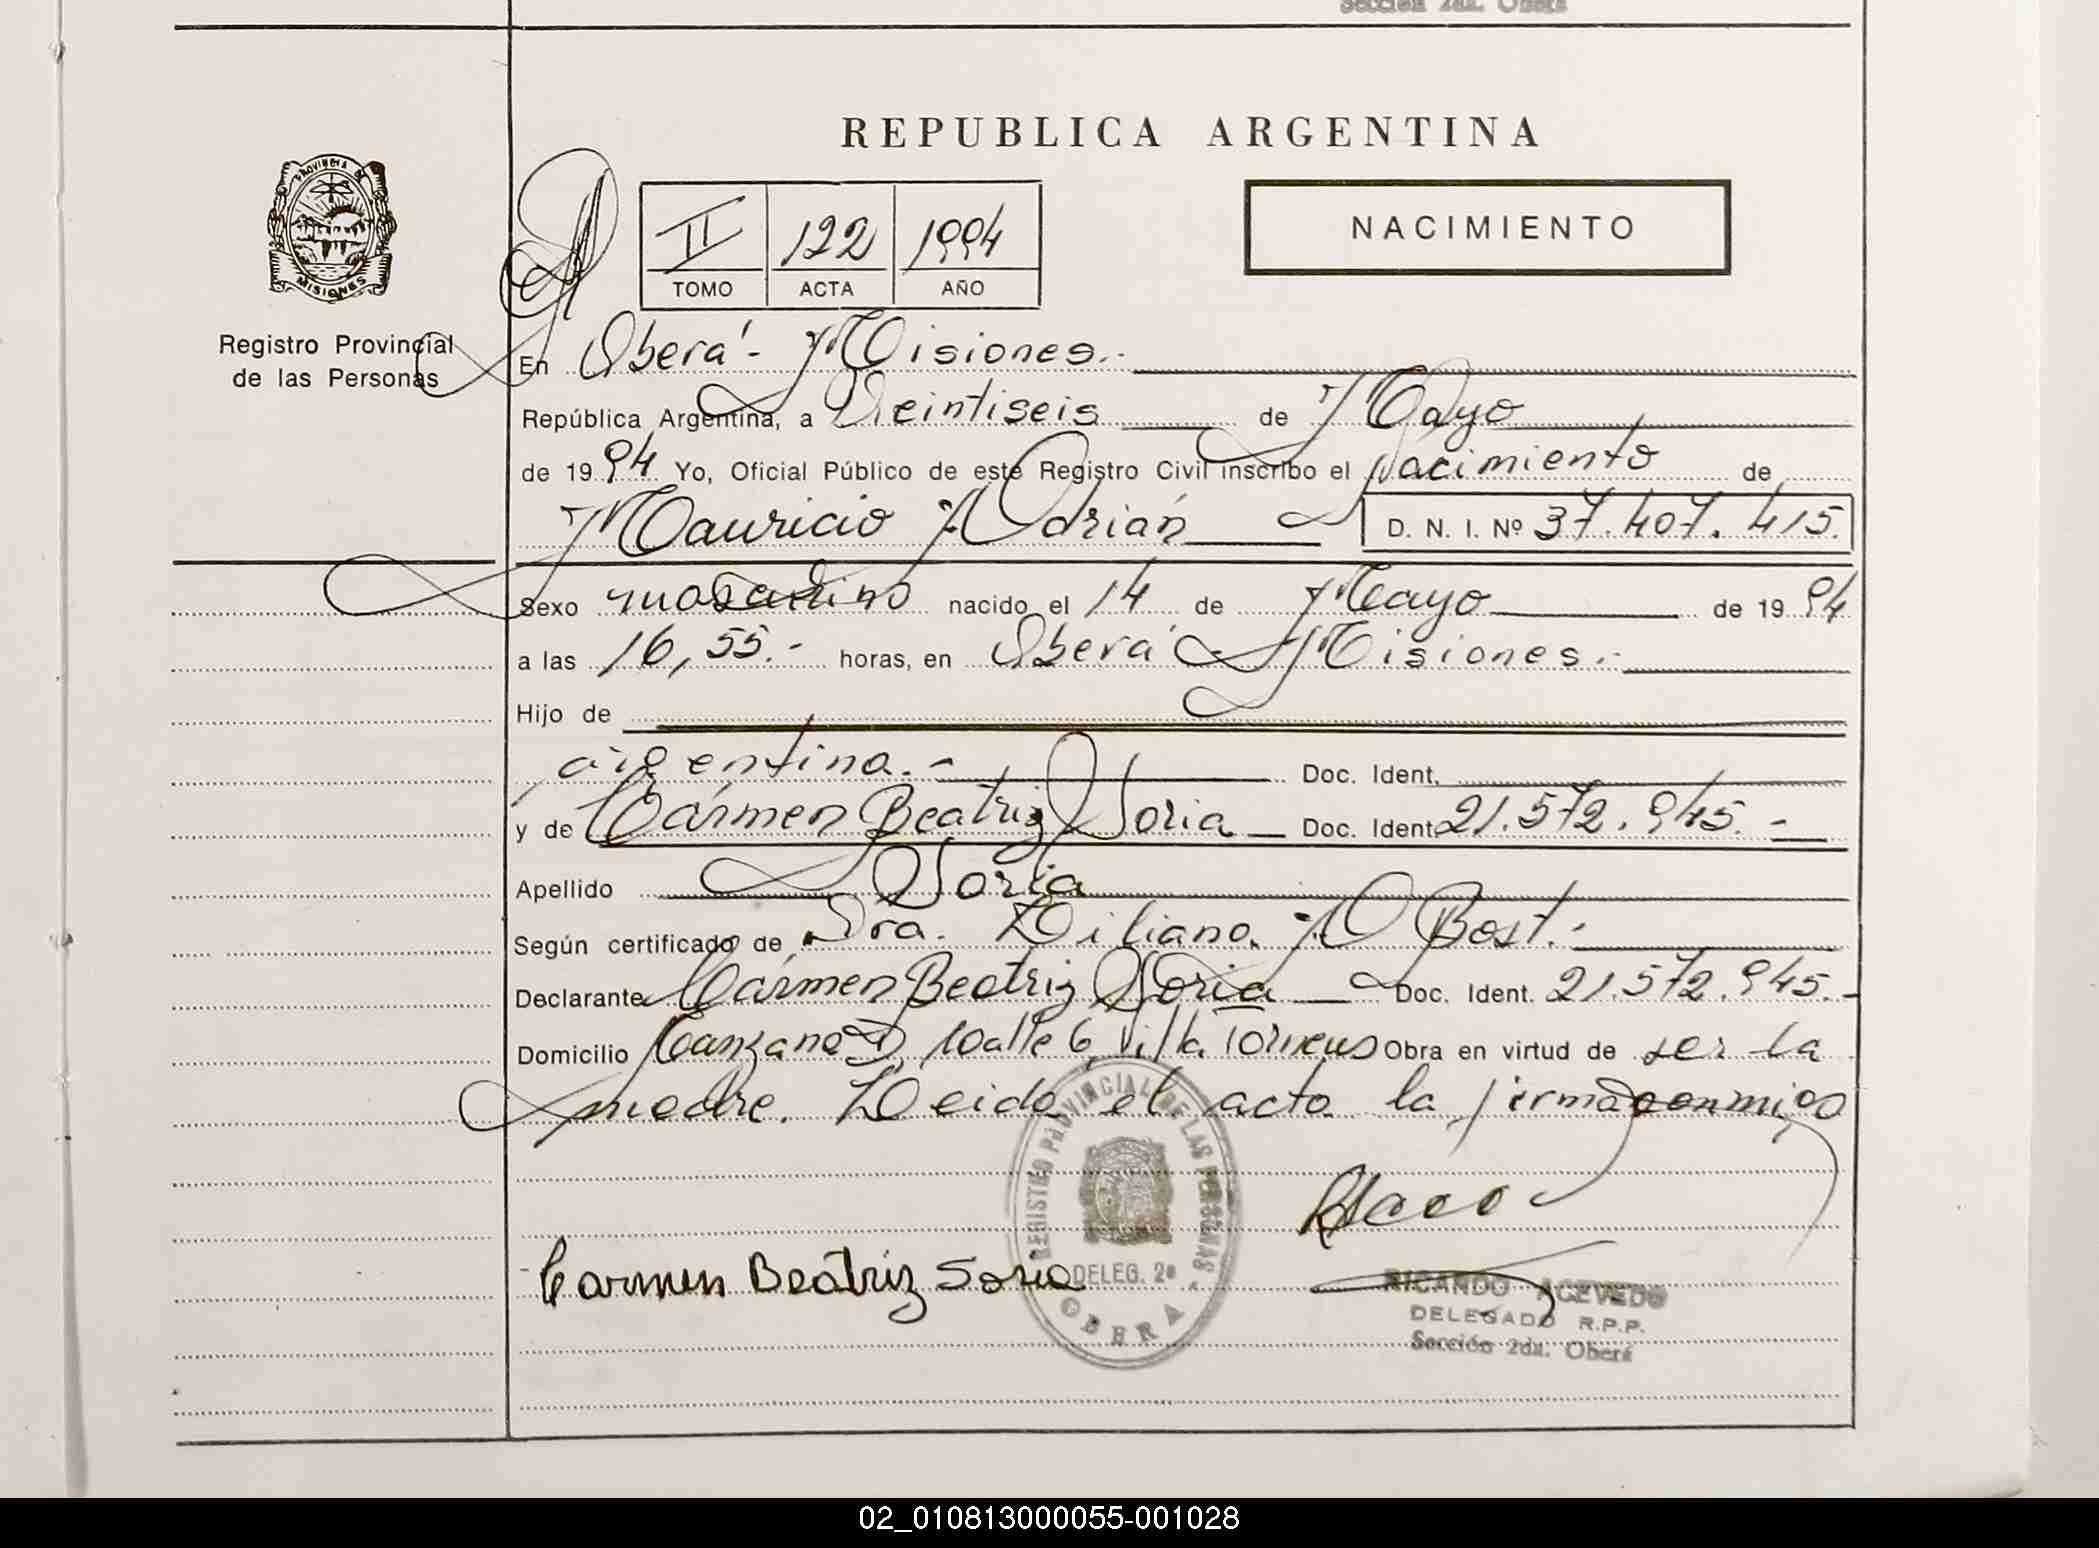 Sección 2da. Oberá
REPUBLICA ARGENTINA
PROVINCIA DE
MISIONES
Registro Provincial
de las Personas
II 122 1994
TOMO ACTA AÑO
NACIMIENTO
En Oberá - Misiones.-
República Argentina, a Veintiseis de Mayo
de 1994 Yo, Oficial Público de este Registro Civil inscribo el Nacimiento de
Mauricio Adrián D. N. I. Nº 37.407.415.
Sexo masculino nacido el 14 de Mayo de 1994
a las 16,55.- horas, en Oberá Misiones.-
Hijo de
argentina.- Doc. Ident.
y de Carmen Beatriz Soria Doc. Ident. 21.572.945.-
Apellido Soria
Según certificado de Dra. Liliana M Bost.-
Declarante Carmen Beatriz Soria Doc. Ident. 21.572.945.-
Domicilio Calle 6 Villa Obra en virtud de ser la
madre. Leida el acta la firma conmigo
REGISTRO PROVINCIAL DE LAS PERSONAS
DELEG. 2ª
OBERA
Carmen Beatriz Soria
RICARDO ACEVEDO
DELEGADO R.P.P.
Sección 2da. Oberá
02_010813000055-001028